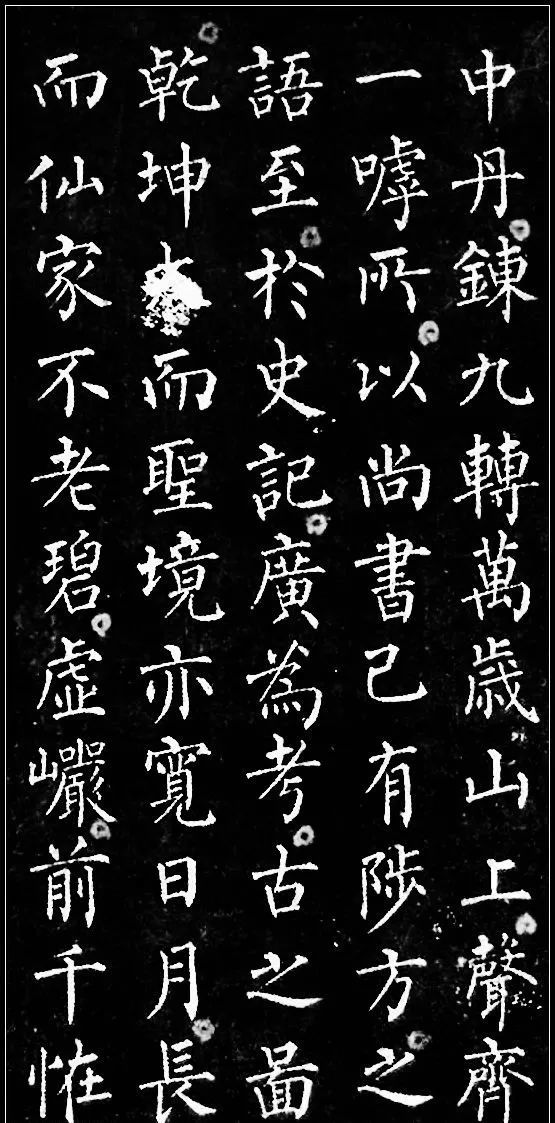 中丹鍊九轉萬歲山上聲齊
一嘑所以尚書已有陟方之
語至於史記廣為考古之啚
乾坤大而聖境亦寬日月長
而仙家不老碧虛巗前千恠